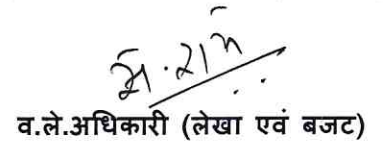 व.ले.अधिकारी (लेखा एवं बजट)